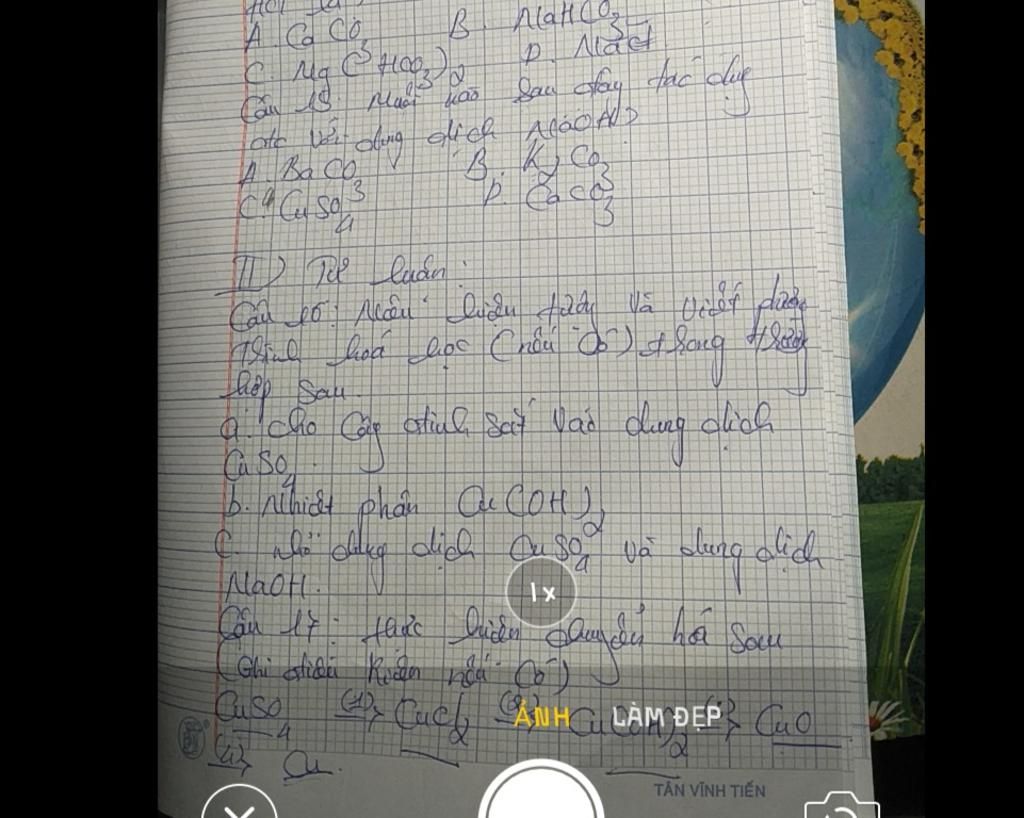 HCl là
A. CaCO3 B. NaHCO3
C. Mg(HCO3)2 D. NaCl
Câu 15: Muối nào sau đây tác dụng
đc với dung dịch NaOH?
A. BaCO3 B. K2CO3
C. CuSO4 D. CaCO3
II) Tự luận:
Câu 16: Nêu hiện tượng và viết phương
trình hoá học (nếu có) trong trường
hợp sau.
a. cho cây đinh sắt vào dung dịch
CuSO4.
b. Nhiệt phân Cu(OH)2
c. nhỏ dung dịch CuSO4 và dung dịch
NaOH.
Câu 17: thực hiện chuyển hoá sau
(Ghi điều kiện nếu có)
CuSO4 (1)→ CuCl2 (2)→ Cu(OH)2 (3)→ CuO
(4)→ Cu.
1x
ẢNH LÀM ĐẸP
TÂN VĨNH TIẾN